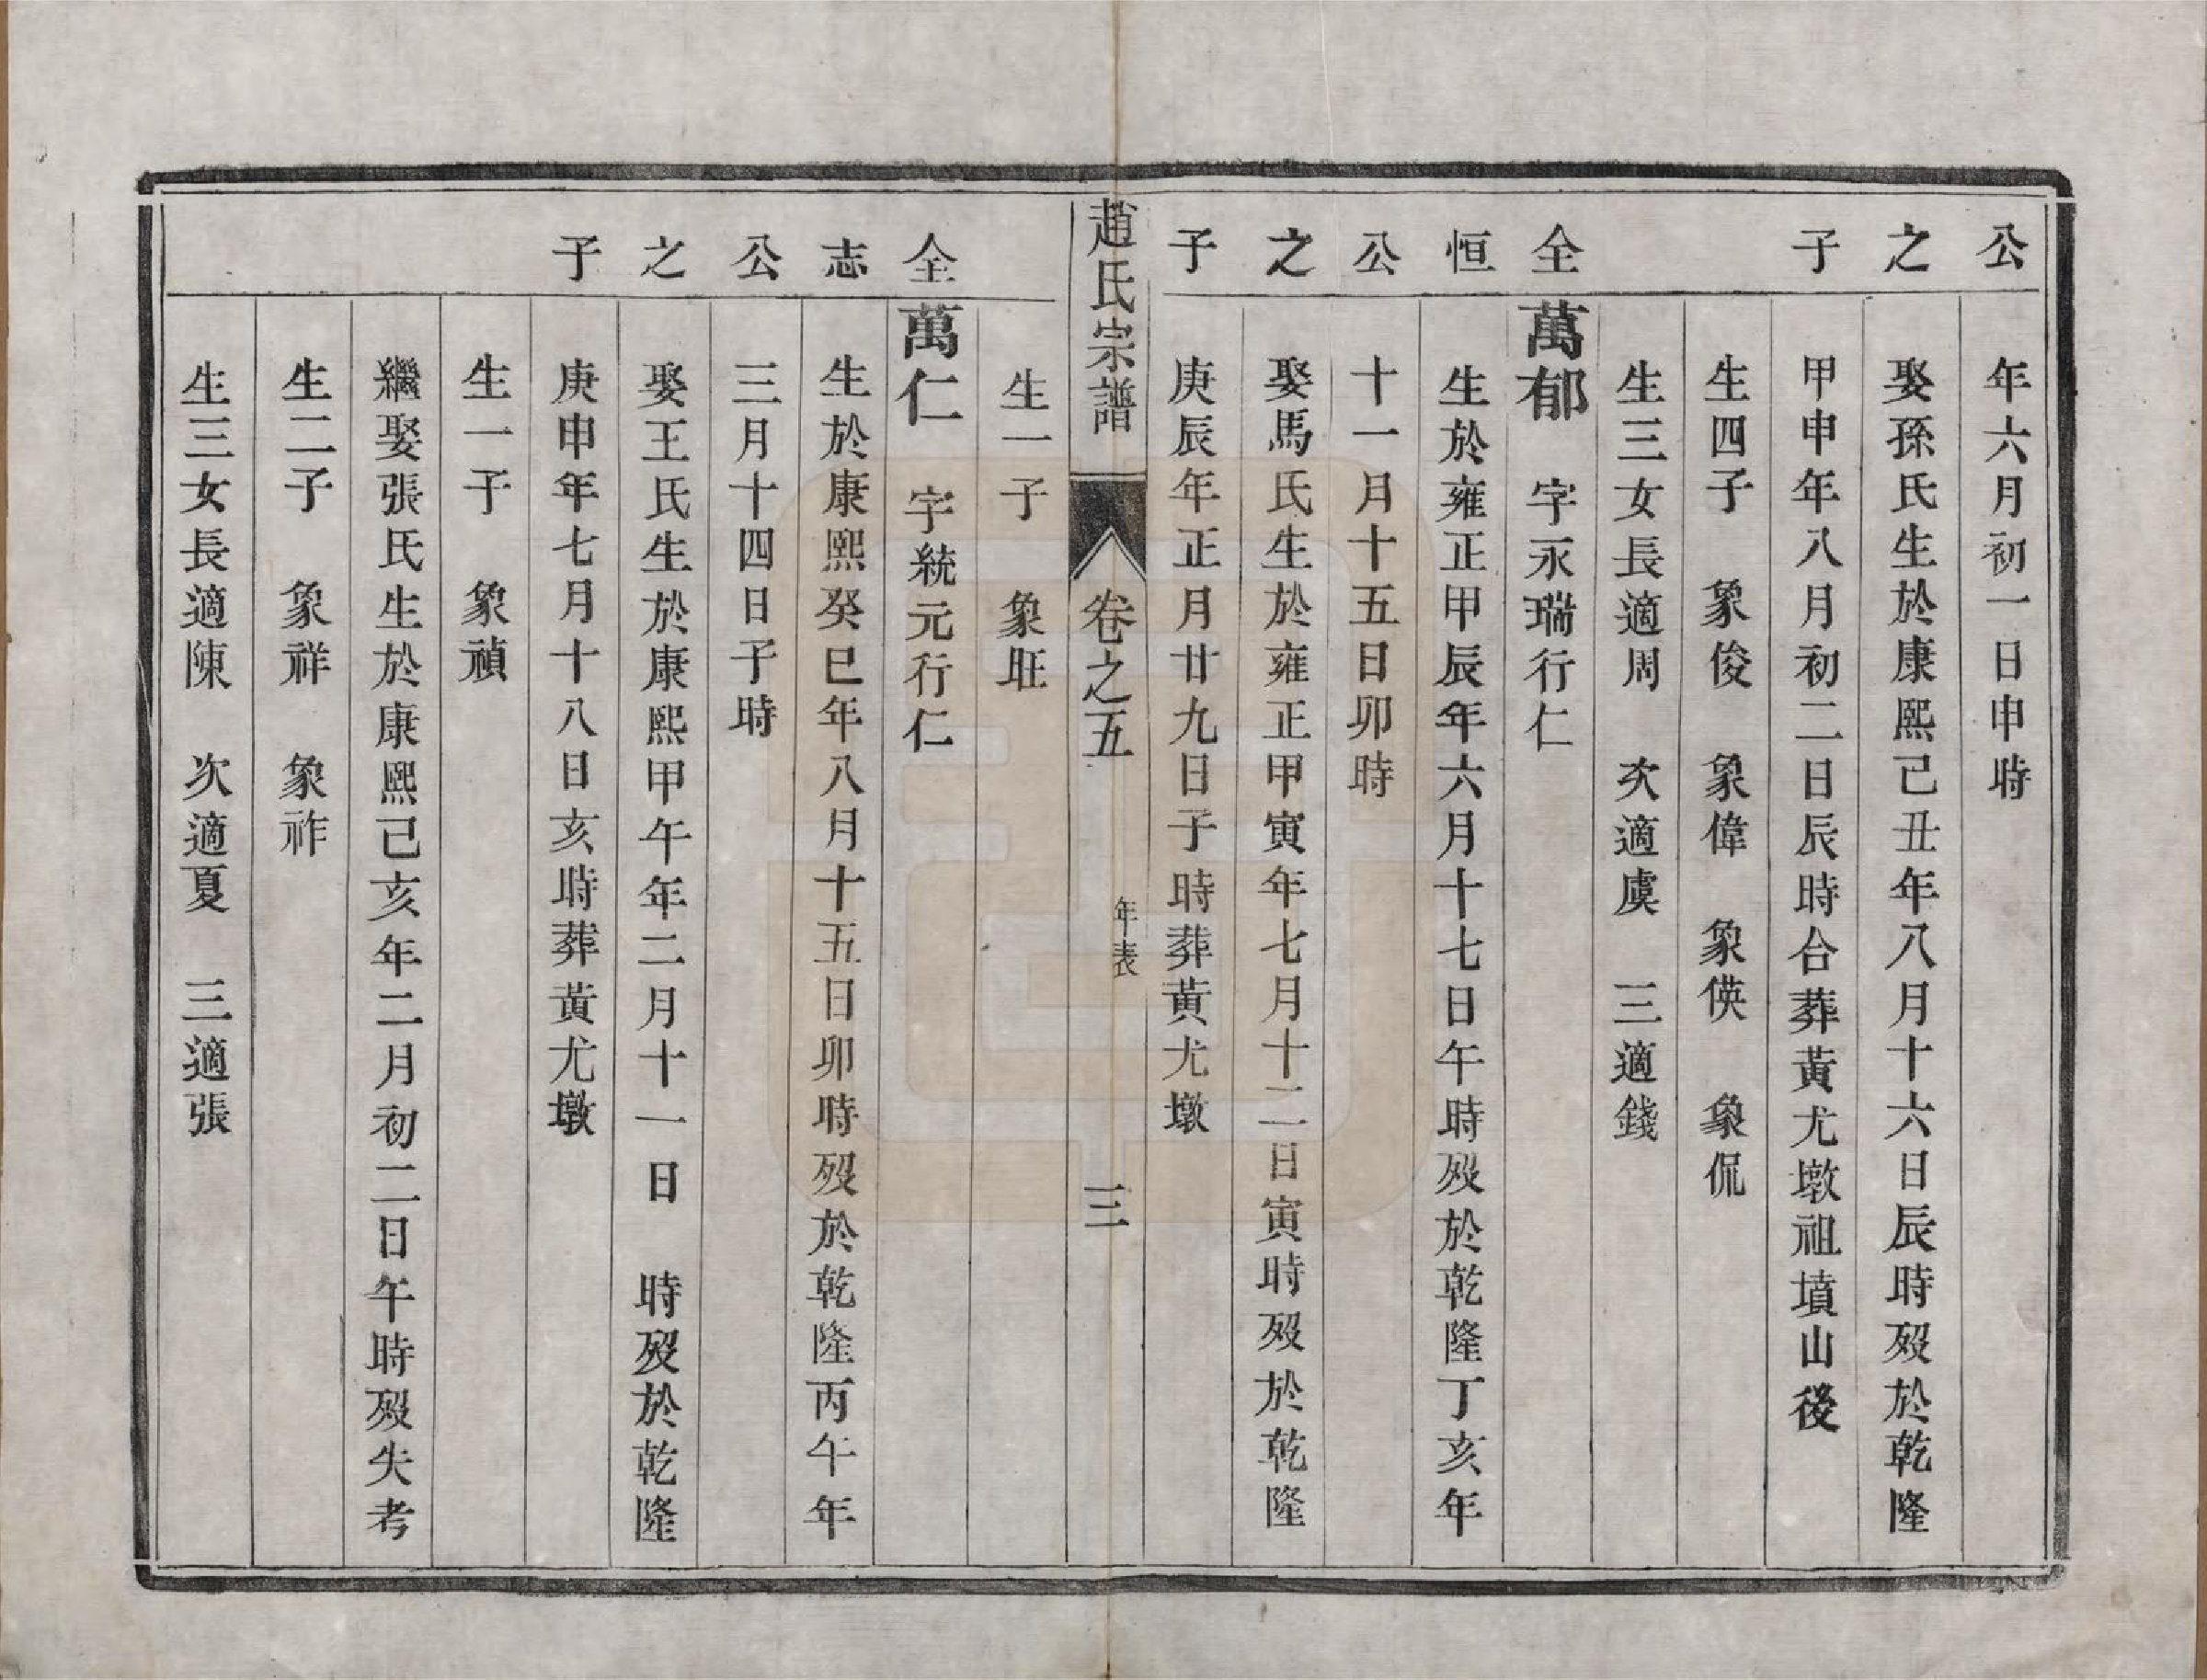 公
年六月初一日申時
之
娶孫氏生於康熙己丑年八月十六日辰時歿於乾隆
子
甲申年八月初二日辰時合葬黃尤墩祖墳山後
生四子　象俊　象偉　象偀　象侃
生三女長適周　次適虞　三適錢
全
萬郁　字永瑞行仁
恒
生於雍正甲辰年六月十七日午時歿於乾隆丁亥年
公
十一月十五日卯時
之
娶馬氏生於雍正甲寅年七月十二日寅時歿於乾隆
子
庚辰年正月廿九日子時葬黃尤墩
趙氏宗譜　卷之五　年表　三
生一子　象旺
全
萬仁　字統元行仁
志
生於康熙癸巳年八月十五日卯時歿於乾隆丙午年
公
三月十四日子時
之
娶王氏生於康熙甲午年二月十一日　時歿於乾隆
子
庚申年七月十八日亥時葬黃尤墩
生一子　象禎
繼娶張氏生於康熙己亥年二月初二日午時歿失考
生二子　象祥　象祚
生三女長適陳　次適夏　三適張